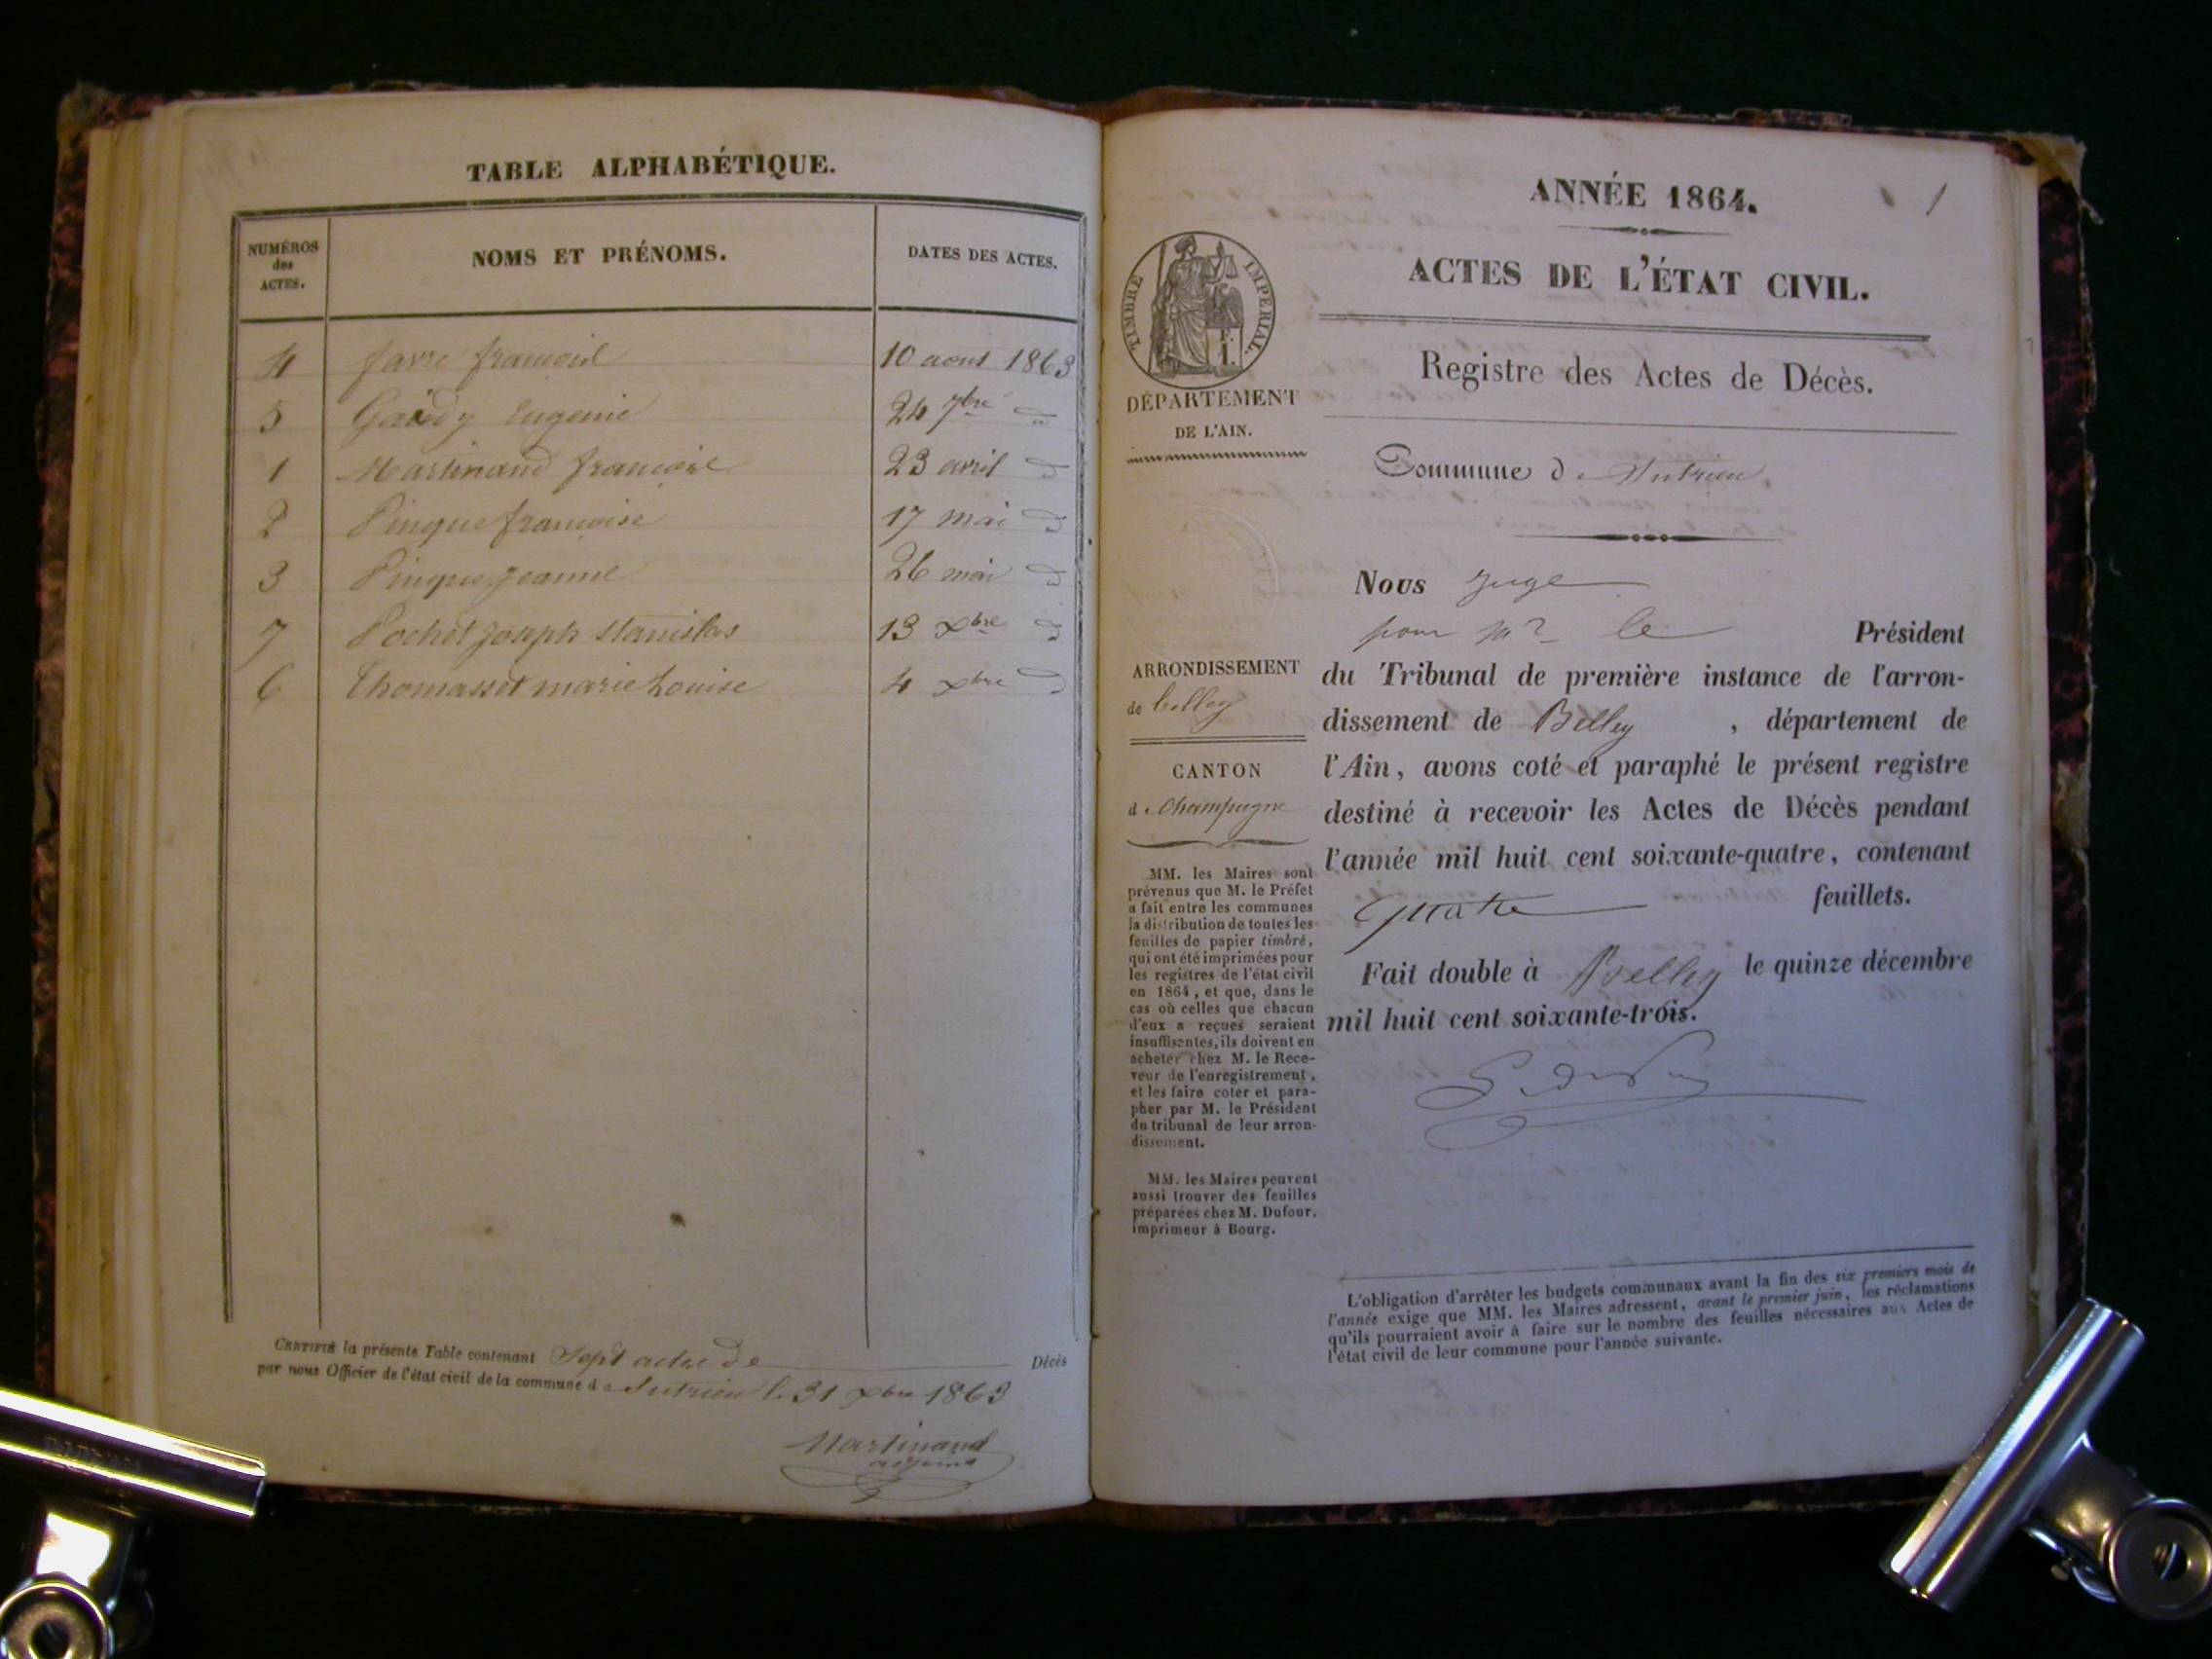 TABLE ALPHABÉTIQUE.
NUMÉROS
des
ACTES.
NOMS ET PRÉNOMS.
DATES DES ACTES.
4 favre 10 aout 1863
5 Gaidy Eugenie 24 7bre d
1 Martinand 23 avril d
2 Pinque francoise 17 mai d
3 Pinque Jeanne 26 mai d
7 Pochet Joseph Stanislas 13 xbre d
6 Thomasset marie Louise 4 xbre d
CERTIFIÉ la présente Table contenant Sept actes de Décès
par nous Officier de l'état civil de la commune de Sutrieu le 31 xbre 1863
Martinand
adjoint
1
ANNÉE 1864.
ACTES DE L'ÉTAT CIVIL.
Registre des Actes de Décès.
TIMBRE IMPÉRIAL.
1 F.
DÉPARTEMENT
DE L'AIN.
Commune de Sutrieu
Nous juge
pour Mr le Président
du Tribunal de première instance de l'arron-
dissement de Belley , département de
l'Ain, avons coté et paraphé le présent registre
destiné à recevoir les Actes de Décès pendant
l'année mil huit cent soixante-quatre, contenant
quatre feuillets.
Fait double à Belley le quinze décembre
mil huit cent soixante-trois.
ARRONDISSEMENT
de belley
CANTON
de Champagne
MM. les Maires sont
prévenus que M. le Préfet
a fait entre les communes
la distribution de toutes les
feuilles de papier timbré,
qui ont été imprimées pour
les registres de l'état civil
en 1864, et que, dans le
cas où celles que chacun
d'eux a reçues seraient
insuffisantes, ils doivent en
acheter chez M. le Rece-
veur de l'enregistrement,
et les faire coter et para-
pher par M. le Président
du tribunal de leur arron-
dissement.
MM. les Maires peuvent
aussi trouver des feuilles
préparées chez M. Dufour,
imprimeur à Bourg.
L'obligation d'arrêter les budgets communaux avant la fin des six premiers mois de
l'année exige que MM. les Maires adressent, avant le premier juin, les réclamations
qu'ils pourraient avoir à faire sur le nombre des feuilles nécessaires aux Actes de
l'état civil de leur commune pour l'année suivante.